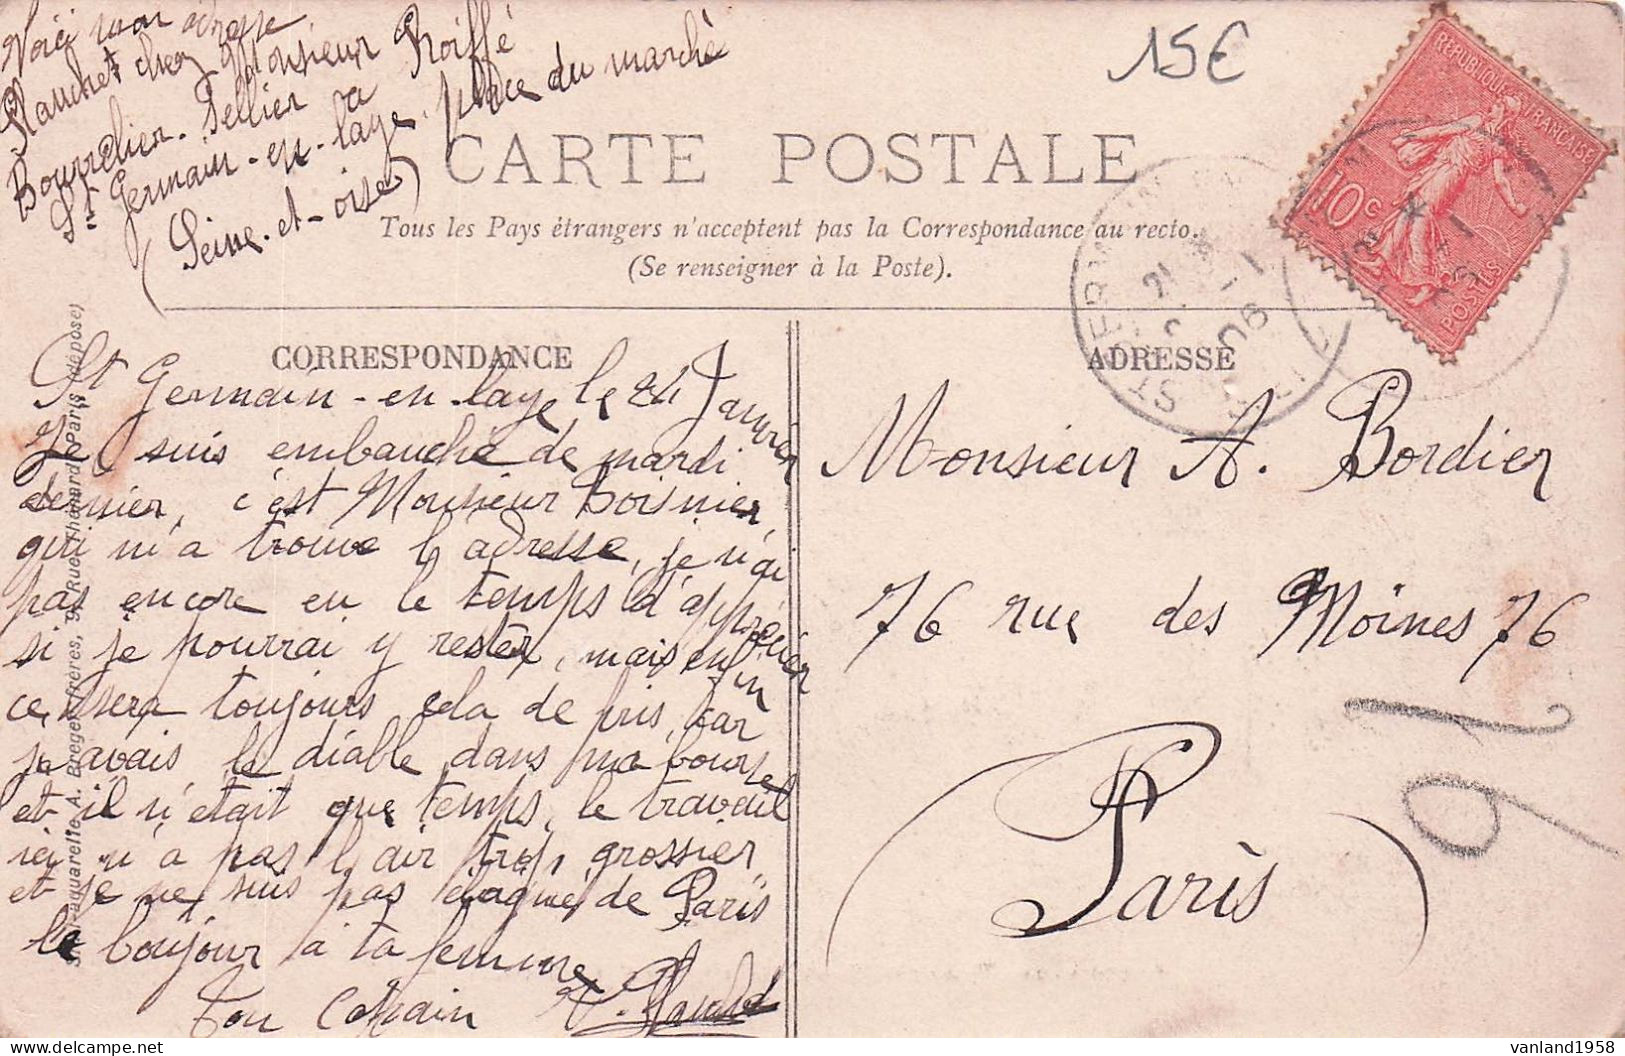 15€
Voici mon adresse
Planchet chez Monsieur Roiffé
Bourrelier. Pellier a
St Germain-en-laye, place du marché
(Seine-et-oise)
CARTE POSTALE
Tous les Pays étrangers n'acceptent pas la Correspondance au recto.
(Se renseigner à la Poste).
REPUBLIQUE FRANÇAISE
10 c
POSTES
CORRESPONDANCE
St Germain-en-laye le 21 Janvier
Je suis embauché de mardi
dernier, c'est Monsieur Boisnier
qui m'a trouve l'adresse, je n'ai
pas encore eu le temps d'apprécier
si je pourrai y rester, mais enfin
ce sera toujours cela de pris, car
j'avais le diable dans ma bourse
et il n'etait que temps, le travail
ici n'a pas l'air trop grossier
et je ne suis pas éloigné de Paris
le boujour à ta femme
Ton Copain
ADRESSE
Monsieur A. Bordier
76 rue des Moines 76
Paris
16
A. Breger frères, 9, Rue Thénard, Paris (déposé)
vanland1958